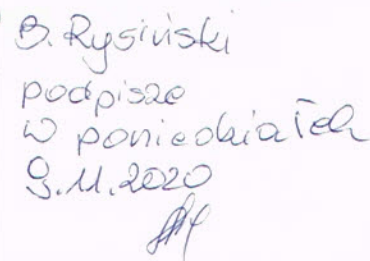 B. Rysiński
podpisze
w poniedziałek
9.11.2020